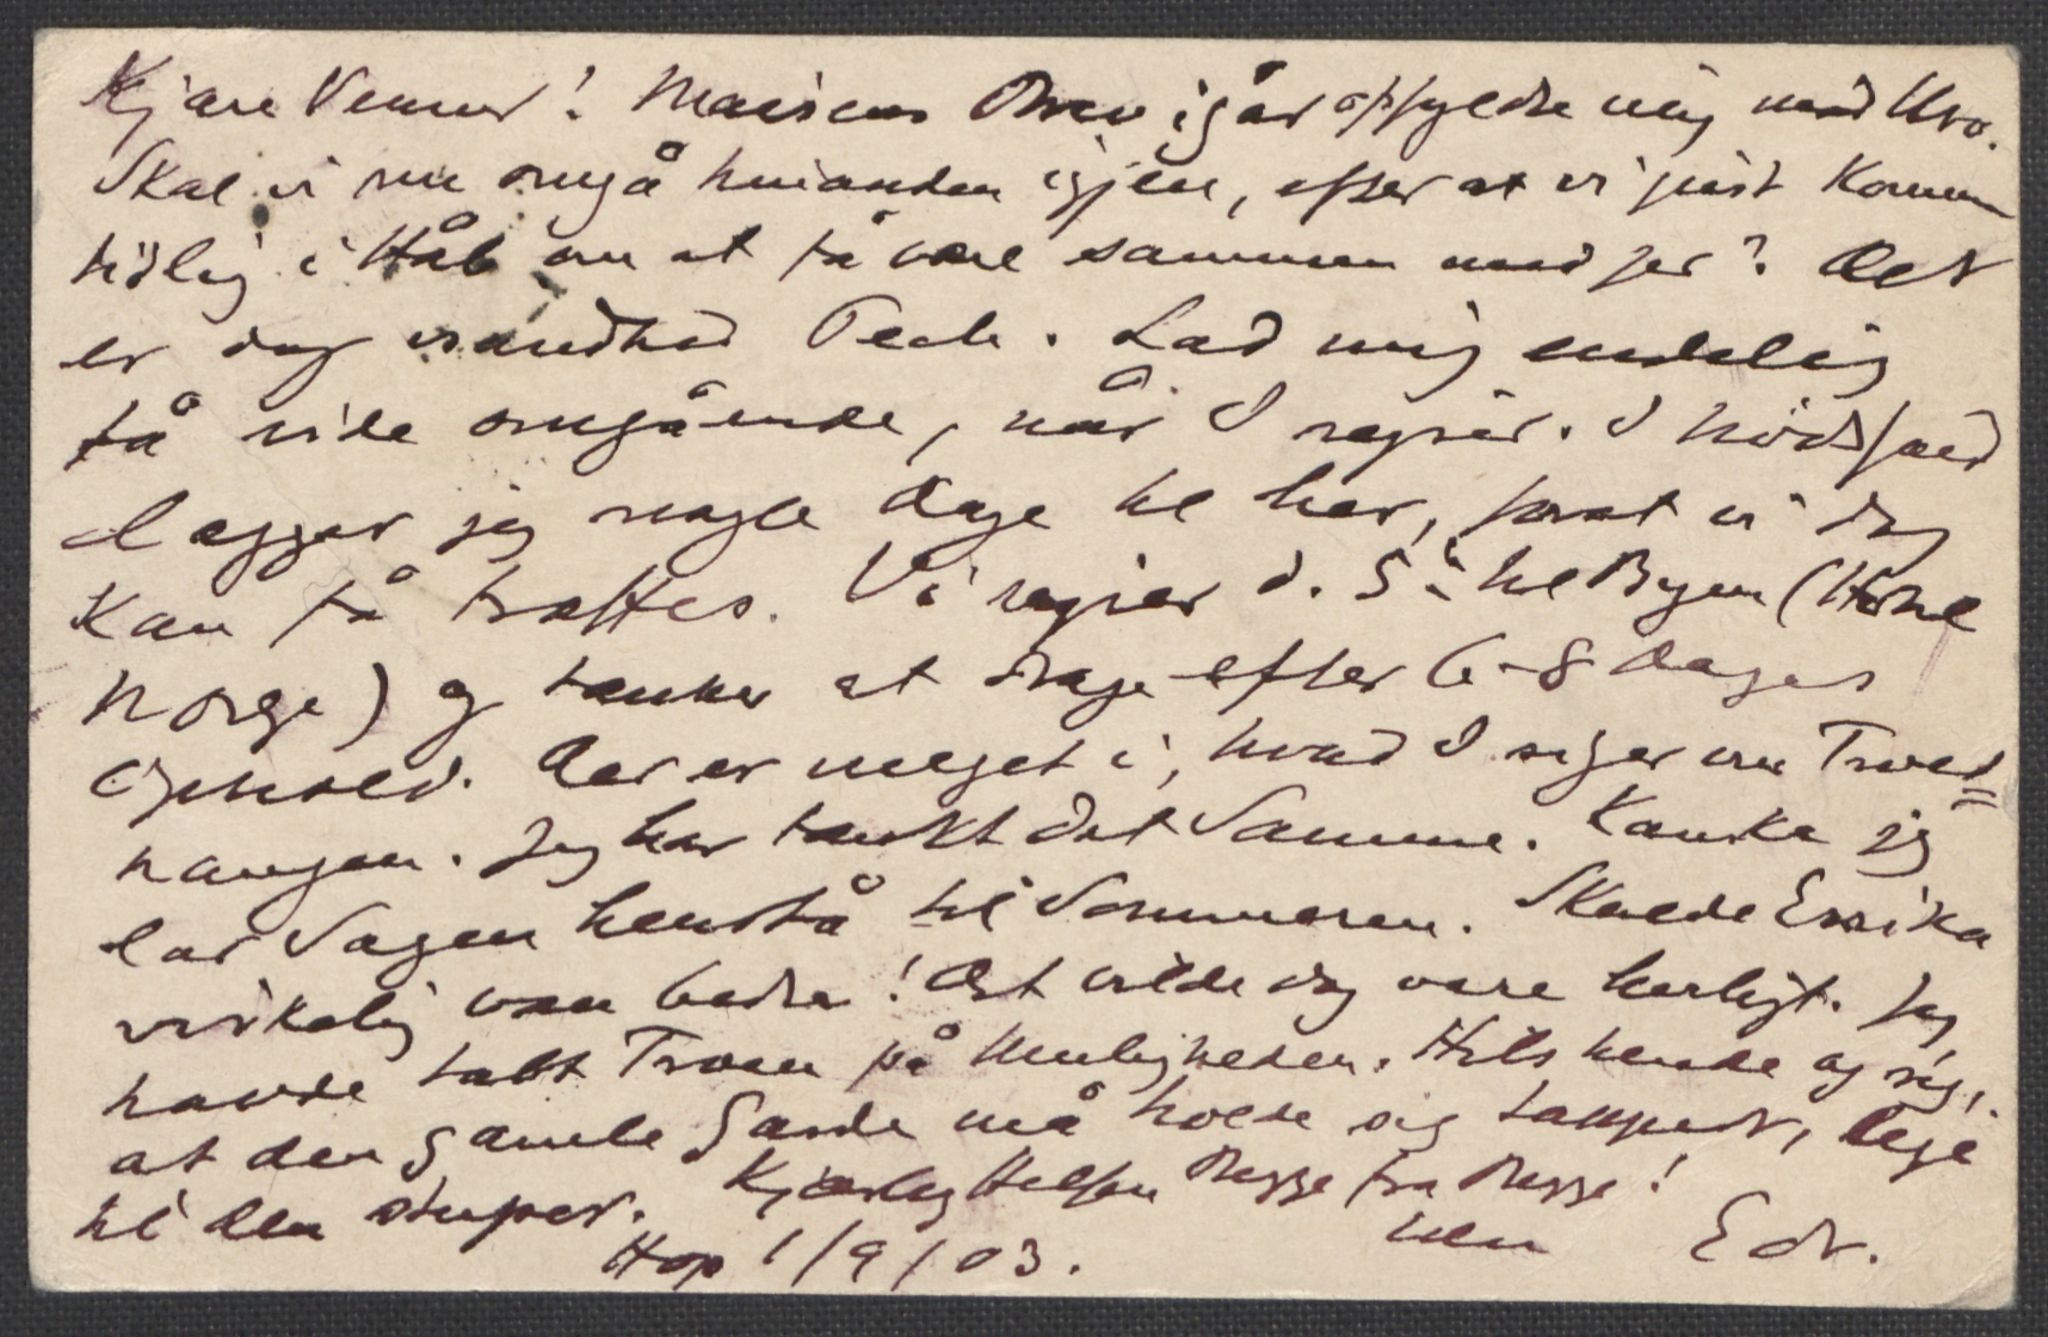 Kjære Venner! Maisens Brev igår opfyldte mig med Uro.
Skal vi nu omgå hinanden igjen, efter at vi just kommer
tidlig i Håb om at få være sammen med Jer? Det
er dog Pech. Lad mig endelig
få vide omgående, når I rejser. I Nødsfald
lægger jeg nogle Dage til her, forat vi dog
kan få træffes. Vi rejser d. 5te til Byen (Hotel
Norge) og tænker at drage efter 6-8 Dages
Ophold. Der er meget i, hvad I siger om Trold=
haugen. Jeg har tænkt det Samme. Kanske jeg
lar Sagen henstå til Sommeren. Skulde Erika
virkelig være bedre! Det vilde dog være herligt. Jeg
havde tabt Troen på Muligheden. Hils hende og sig,
at den gamle Garde må holde sig tappert, lige
til den stuper. Kjærlig Hilsen Begge fra Begge!
Hop 1/9/03. Edv.